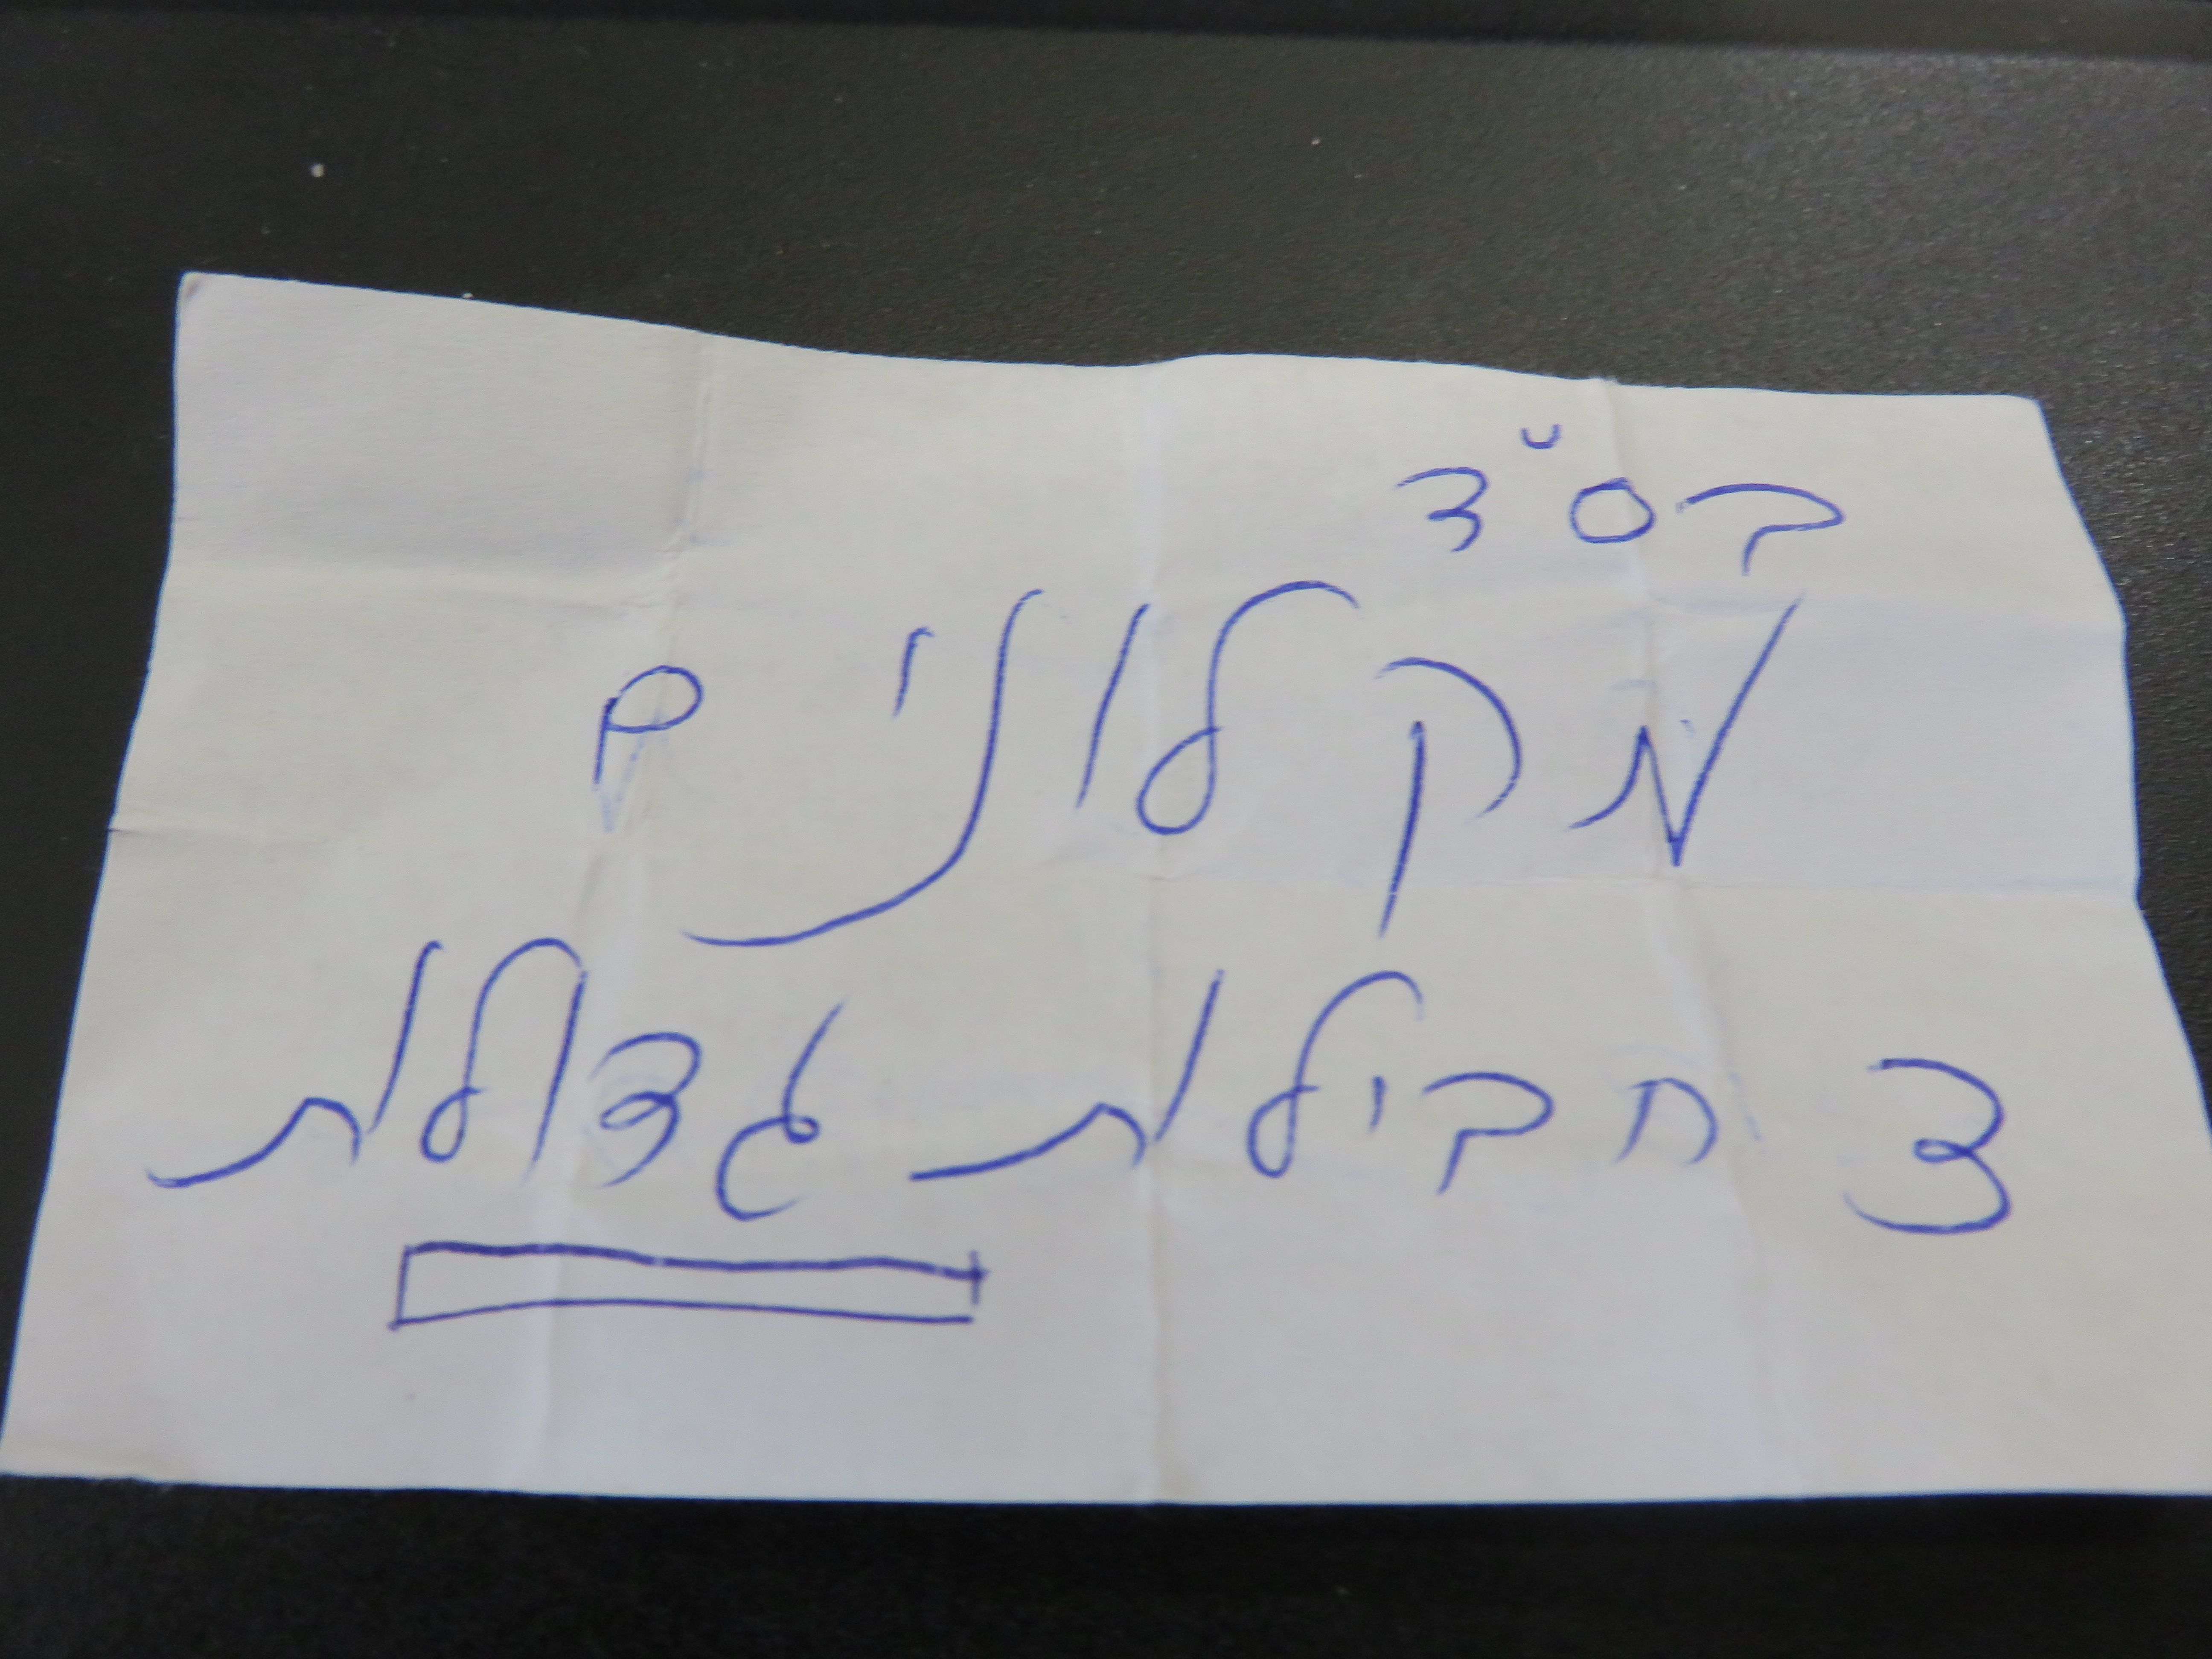 בס"ד
מקלונים
3 חבילות גדולות